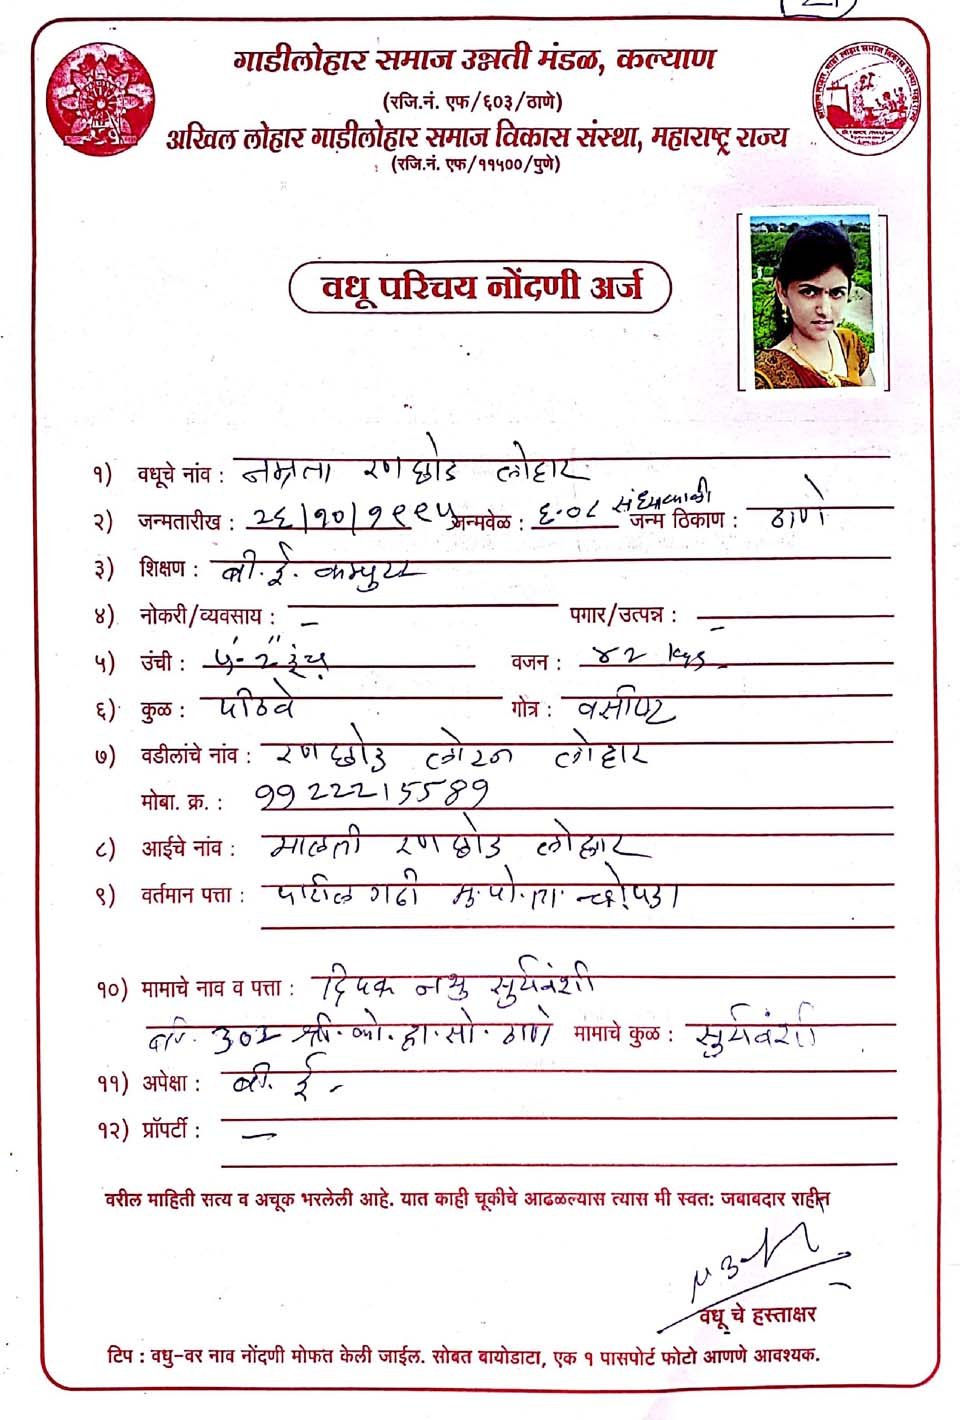 गाडीलोहार समाज उन्नती मंडळ, कल्याण
(रजि.नं. एफ/६०३/ठाणे)
अखिल लोहार गाडीलोहार समाज विकास संस्था, महाराष्ट्र राज्य
(रजि.नं. एफ/११५००/पुणे)
वधू परिचय नोंदणी अर्ज
१) वधूचे नांव : नम्रता रणछोड लोहार
२) जन्मतारीख : २६/१०/१९९५ जन्मवेळ : ६.०८ संध्याकाळी जन्म ठिकाण : ठाणे
३) शिक्षण : बी.ई. कम्पुटर
४) नोकरी/व्यवसाय : – पगार/उत्पन्न : –
५) उंची : ५'-२" इंच वजन : ४२ kgs
६) कुळ : पठिवे गोत्र : वसीष्ट
७) वडीलांचे नांव : रणछोड लोटन लोहार
मोबा. क्र. : 9922215589
८) आईचे नांव : मालती रणछोड लोहार
९) वर्तमान पत्ता : पाटील गढी मु.पो.ता. चोपडा
१०) मामाचे नाव व पत्ता : दिपक नथु सुर्यवंशी
बी. 302 श्री. को. हा. सो. ठाणे मामाचे कुळ : सुर्यवंशी
११) अपेक्षा : बी. ई -
१२) प्रॉपर्टी : –
वरील माहिती सत्य व अचूक भरलेली आहे. यात काही चूकीचे आढळल्यास त्यास मी स्वत: जबाबदार राहीन
वधू चे हस्ताक्षर
टिप : वधु-वर नाव नोंदणी मोफत केली जाईल. सोबत बायोडाटा, एक १ पासपोर्ट फोटो आणणे आवश्यक.